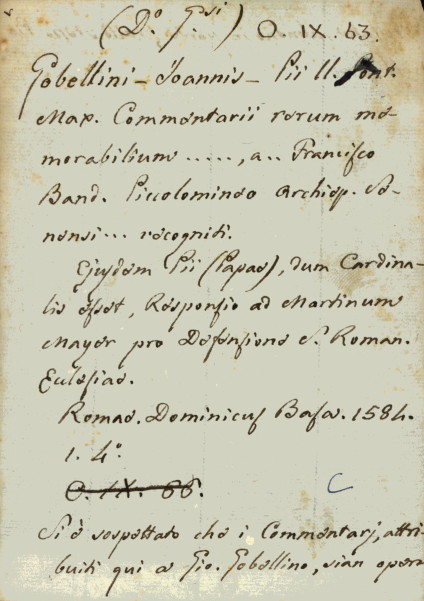 (D.º G.si)
O. IX. 63.
Gobellini - Joannis - Pii II. Pont.
Max. Commentarii rerum me-
morabilium ....., a.. Francisco
Band. Piccolomineo Archiep. Se-
nensi... recogniti.
Ejusdem Pii (Papae), dum Cardina-
lis esset, Responsio ad Martinum
Mayer pro Defensione S. Roman.
Eclesiae.
Romae. Dominicus Basa. 1584.
1. 4.º
O. IX. 66.
C
Si è sospettato che i Commentarj, attri-
buiti qui a Gio. Gobellino, sian opera